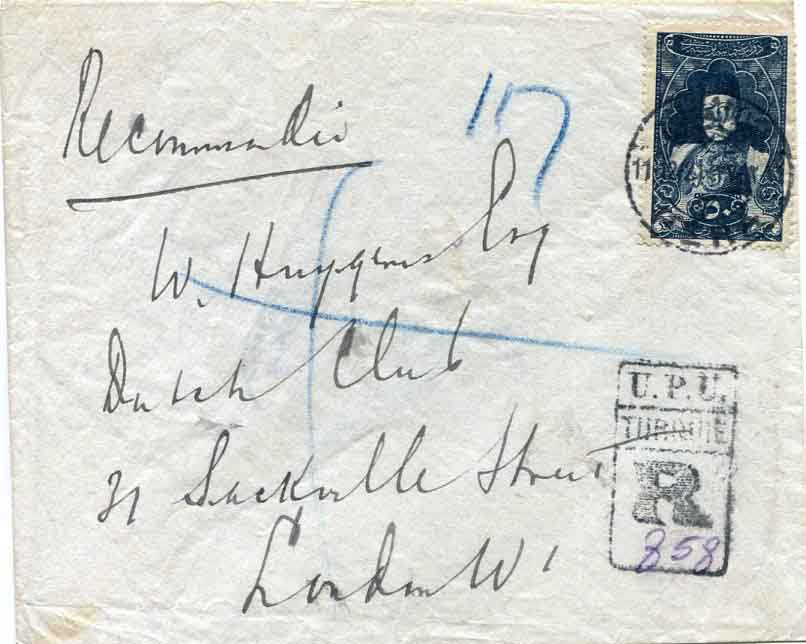 Recommandée
"17
W. Huygens Esq
Dutch Club
31 Sackville Street
London W1
U.P.U.
TURQUIE
R
858
٥٠